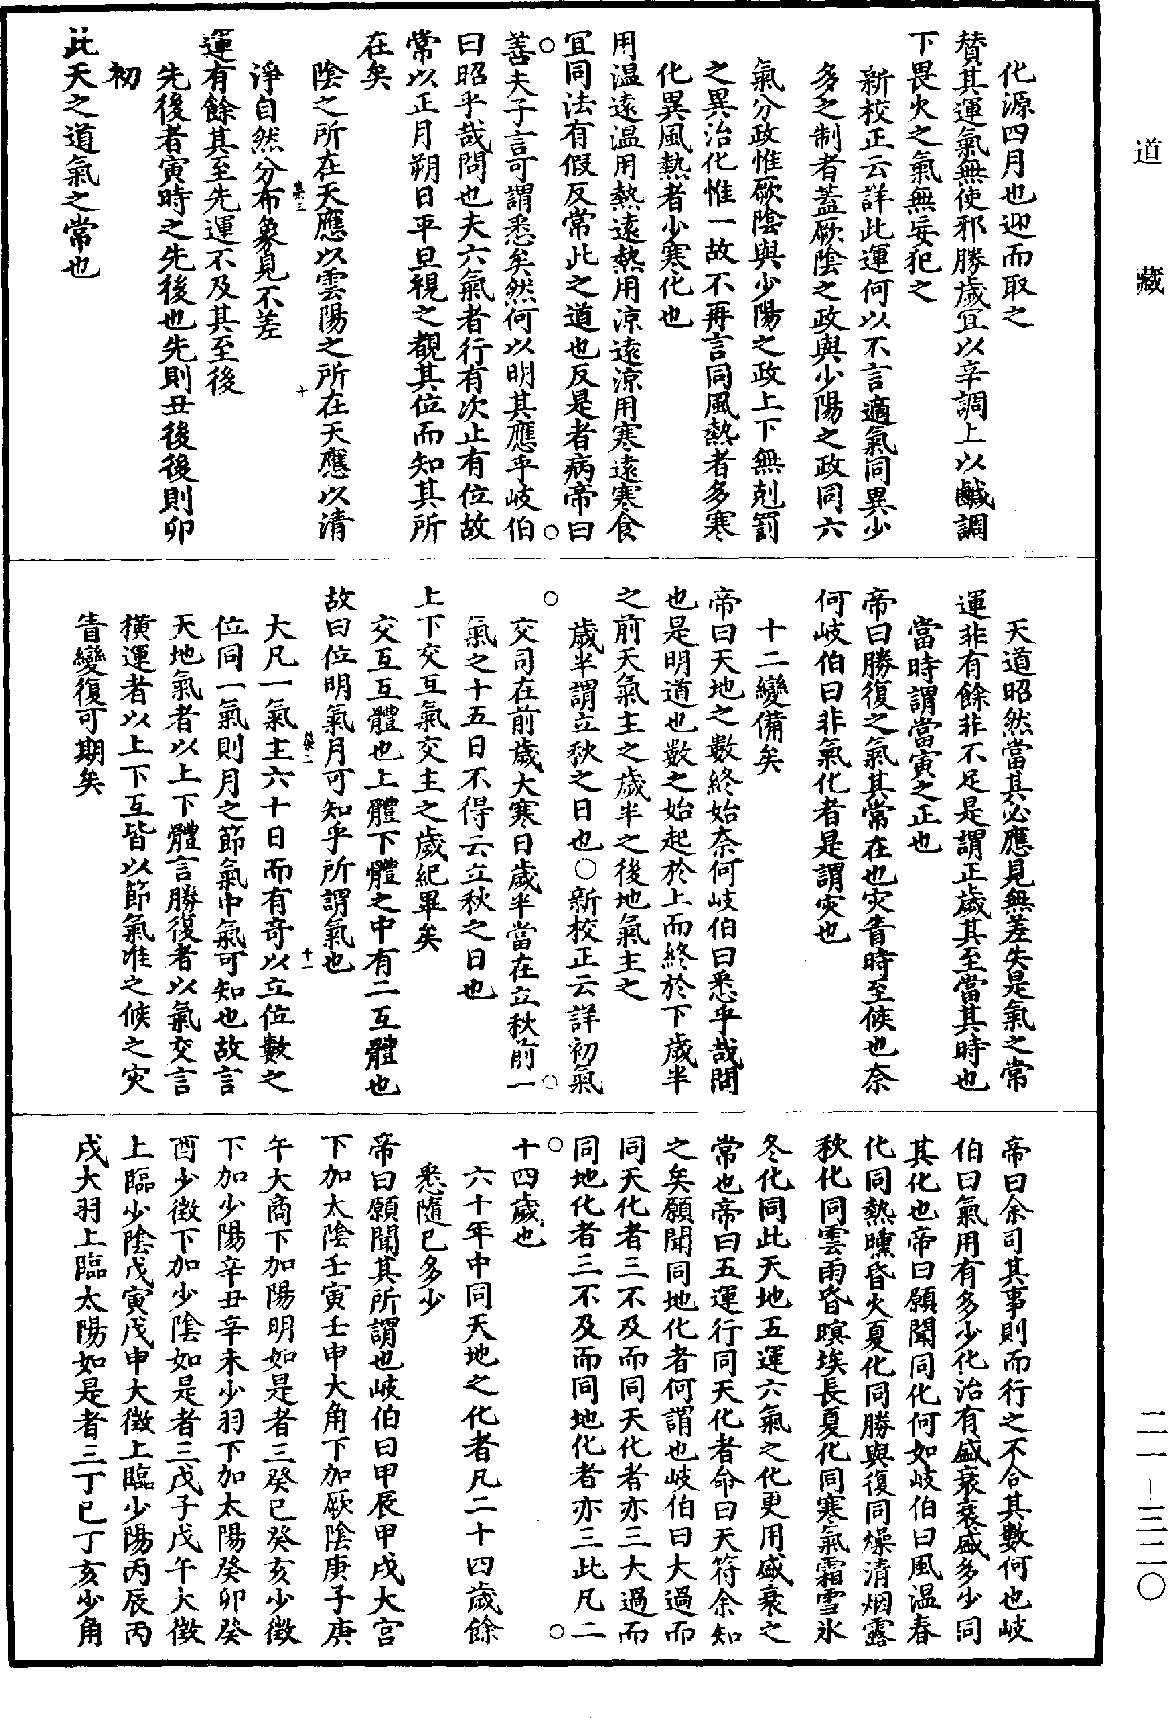 道藏
化源四月也迎而取之
賛其運氣無使邪勝歲宜以辛調上以鹹調
下畏火之氣無妄犯之
新校正云詳此運何以不言適氣同異少
多之制者蓋厥陰之政與少陽之政同六
氣分政惟厥陰與少陽之政上下無剋罰
之異治化惟一故不再言同風熱者多寒
化異風熱者少寒化也
用温遠温用熱遠熱用涼遠涼用寒遠寒食
宜同法有假反常此之道也反是者病帝曰
善夫子言可謂悉矣然何以明其應乎岐伯
曰昭乎哉問也夫六氣者行有次止有位故
常以正月朔日平旦視之覩其位而知其所
在矣
陰之所在天應以雲陽之所在天應以清
集三 十
淨自然分布象見不差
運有餘其至先運不及其至後
先後者寅時之先後也先則丑後後則卯
初
此天之道氣之常也
天道昭然當其必應見無差失是氣之常
運非有餘非不足是謂正歲其至當其時也
當時謂當寅之正也
帝曰勝復之氣其常在也灾眚時至候也奈
何岐伯曰非氣化者是謂灾也
十二變備矣
帝曰天地之數終始奈何岐伯曰悉乎哉問
也是明道也數之始起於上而終於下歲半
之前天氣主之歲半之後地氣主之
歲半謂立秋之日也○新校正云詳初氣
交司在前歲大寒日歲半當在立秋前一
氣之十五日不得云立秋之日也
上下交互氣交主之歲紀畢矣
交互互體也上體下體之中有二互體也
故曰位明氣月可知乎所謂氣也
十一
大凡一氣主六十日而有奇以立位數之
位同一氣則月之節氣中氣可知也故言
天地氣者以上下體言勝復者以氣交言
橫運者以上下互皆以節氣准之候之灾
眚變復可期矣
帝曰余司其事則而行之不合其數何也岐
伯曰氣用有多少化治有盛衰衰盛多少同
其化也帝曰願聞同化何如岐伯曰風温春
化同熱曛昏火夏化同勝與復同燥清烟露
秋化同雲雨昏暝埃長夏化同寒氣霜雪氷
冬化同此天地五運六氣之化更用盛衰之
常也帝曰五運行同天化者命曰天符余知
之矣願聞同地化者何謂也岐伯曰大過而
同天化者三不及而同天化者亦三大過而
同地化者三不及而同地化者亦三此凡二
十四歲也
六十年中同天地之化者凡二十四歲餘
悉隨已多少
帝曰願聞其所謂也岐伯曰甲辰甲戌大宮
下加太陰壬寅壬申大角下加厥陰庚子庚
午大商下加陽明如是者三癸巳癸亥少徵
下加少陽辛丑辛未少羽下加太陽癸卯癸
酉少徵下加少陰如是者三戊子戊午大徵
上臨少陰戊寅戊申大徵上臨少陽丙辰丙
戌大羽上臨太陽如是者三丁巳丁亥少角
二一–三二〇